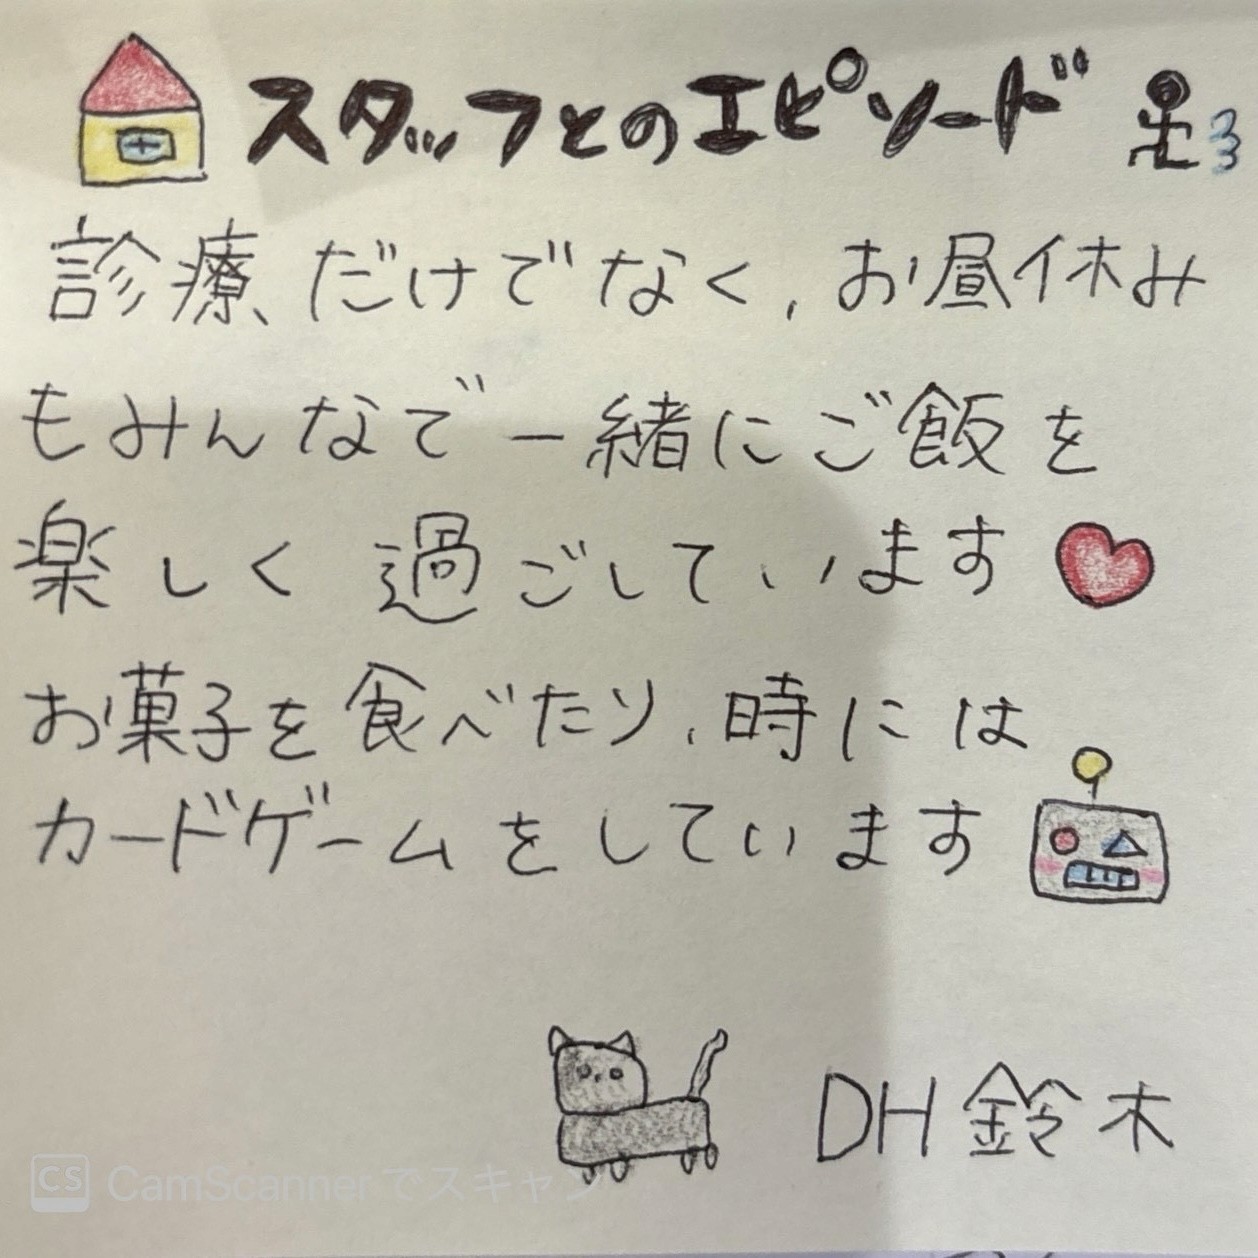 スタッフとのエピソード
診療だけでなく、お昼休み
もみんなで一緒にご飯を
楽しく過ごしています
お菓子を食べたり、時には
カードゲームをしています
DH鈴木
CS CamScannerでスキャン